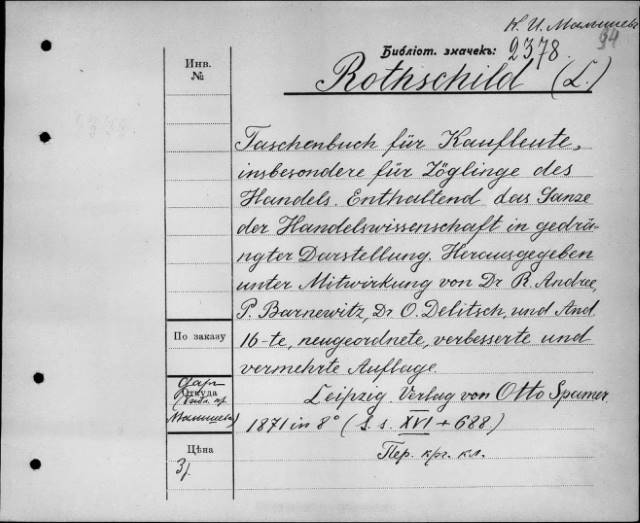 Н. И. Малышева
94
Библіот. значекъ: 2378.
Инв. №
Rothschild (L.)
Taschenbuch für Kaufleute,
insbesondere für Zöglinge des
Handels. Enthaltend das Ganze
der Handelswissenschaft in gedrä-
ngter Darstellung. Herausgegeben
unter Mitwirkung von Dr R. Andree,
P. Barnewitz, Dr O. Delitsch, und And.
По заказу
16-te, neugeordnete, verbesserte und
vermehrte Auflage.
Даръ
Откуда
Малышева)
Leipzig. Verlag von Otto Spamer
1871 in 8° (S. s. XVI + 688)
Цѣна
3р.
Пер. крг. кл.